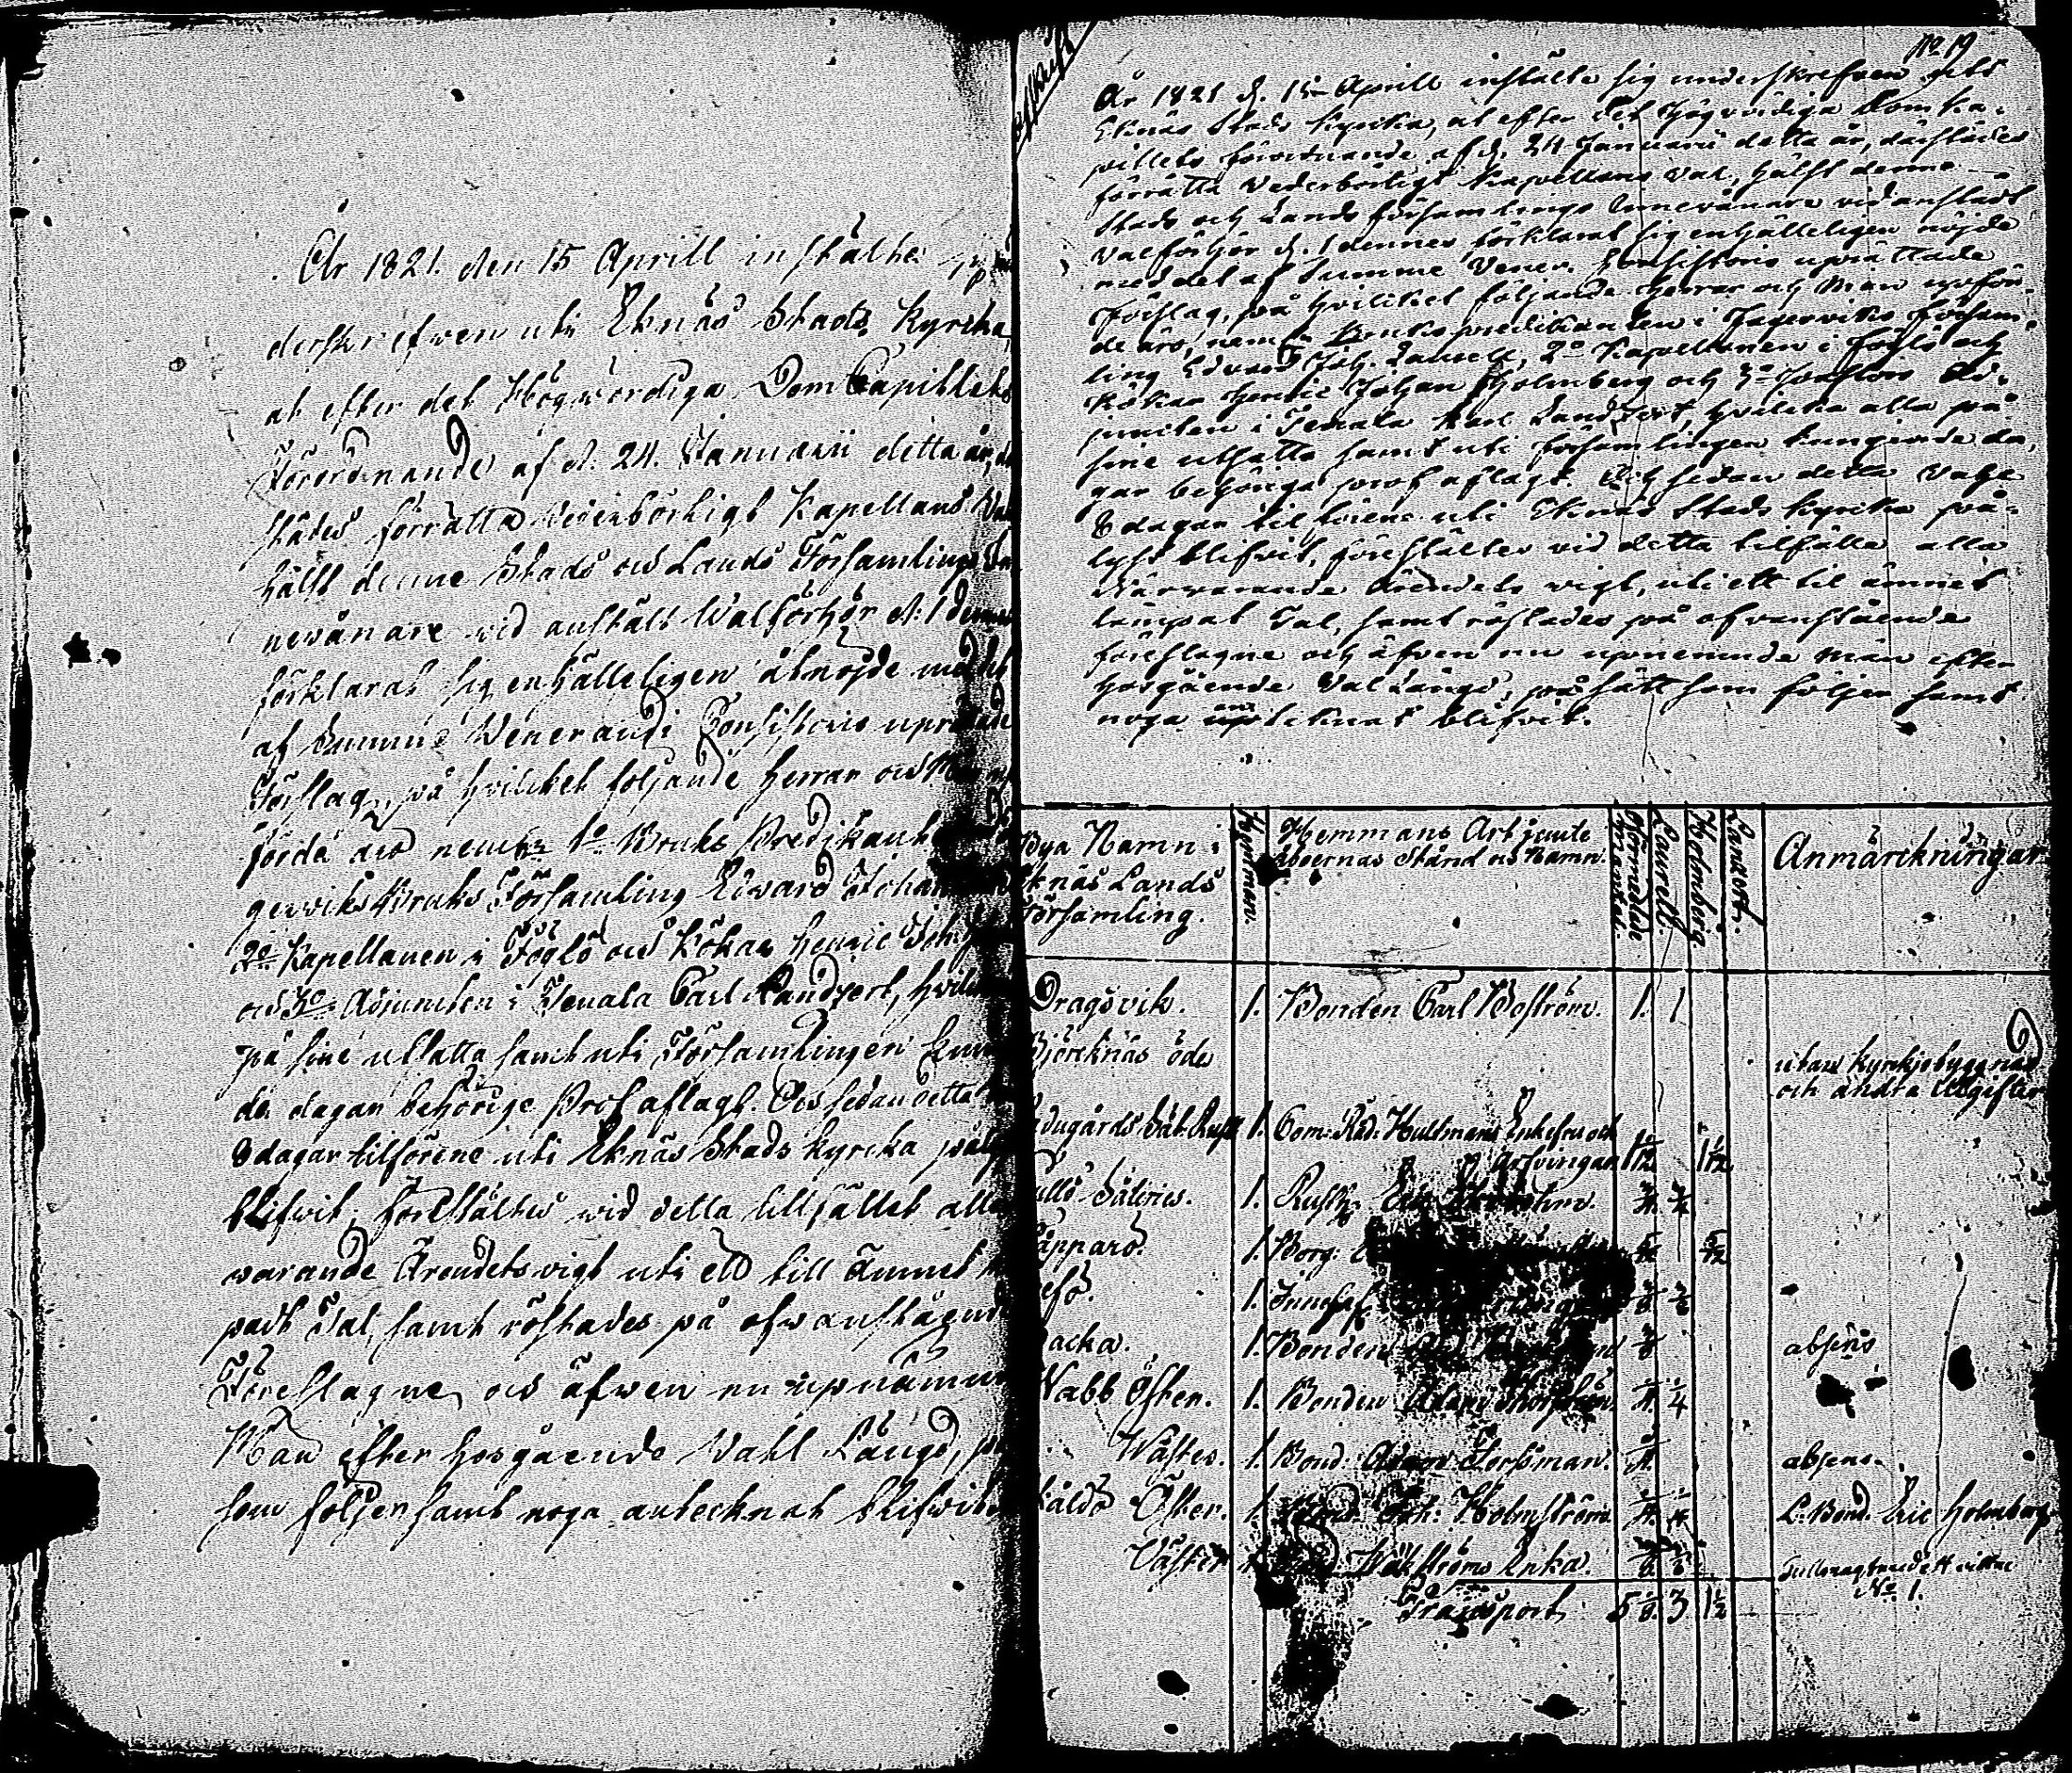 År 1821. den 15 Aprill instälte
derskrefwen uti Eknäs Stads Kyrcka,
at efter det Högwördiga Dom Capitlets
Förordnande af d. 24. Januarii detta år, dä
städes förrätta Vederbörligt Kapellans Val
hälst denne Stads och Lands Församlings In
nevånare vid anstält Walförhör d. 1 dennes
förklarat sig enhälleligen åtnöjde med det
af Summe Venerandi Consistorio uprättade
Förslag, på hvilcket följande Herrar och Män
förde äro neml. 1o Bruks Predikant
gervik Bruks Församling Edvard Johan
2o Kapellanen i Föglö och Kökar Henric Joh.
och 3o Adjuncten i Tenala Carl Landzert, hvil
på sine utsatta samt uti Församlingen kun
de dagar behörige Prof aflagt. Och sedan detta
8 dagar tilförene uti Eknäs Stads kyrcka pål
blifwit, förestältes vid detta tillfället alla
warande Ärendets vigt uti ett till ämnet
padt Tal, samt röstades på ofwanståend
Föreslagne och äfwen nu upnämn
Män efter hosgående Vahl Längd, p
som följer samt noga antecknat blifwit
No 19
År 1821 d. 15 Aprill instälte sig underskrefven uti
Eknäs Stads Kyrcka, at efter det Högvördiga Domka-
pitlets förordnande af d. 24 Januarii detta år, därstädes
förrätta Vederbörligt Kapellans val, hälst denne
Stads och Lands församlings Innevånare vid anstält
valförhör d. 1 dennes förklarat sig enhälleligen nöjde
med det af Summe Vener. Consistorio uprättade
Förslag, på hvilcket följande Herrar och Män upför-
de äro, neml. Brukspredikanten i Fagerviks församl-
ling Edvard Joh. Laurell, 2o Kapellanen i Föglö och
Kökar Henric Johan Holmberg och 3o Ad-
juncten i Tenala Karl Landzert, hvilcka alla på
sine utsatta samt uti församlingen kungjorde da-
gar behöriga prof aflagt. Och sedan detta Vahl
8 dagar til förene uti Eknäs Stads Kyrcka på-
lyst blifvit, föreställtes vid detta tilfälle alla
Närvarande Ärendets vigt, uti ett til ämnet
lämpat Tal, samt röstades på ofvanstående
föreslagne och äfven nu upnemnde män efter
hosgående Val Längd, på sätt som följer samt
noga antecknat blifvit.
Bya Namn i
Eknäs Lands
Församling.
Hemman.
Hemmans Art jemte
Åboernas Stånd och Namn.
Förmedlade
Mantal.
Laurell.
Holmberg
Landzert.
Anmärckningar
Dragsvik. 1. Bonden Carl Boström. 1. 1
Björcknäs öde utan kyrkjobyggnad
och andra Utgifter
Ladugårds Säte Rust 1. Com: Råd. Hultmans Enkefru och
Arfvingar 1 1/12 1 1/12
1. Rusth.
1. Borg: 5/12 5/12
1.
Backa. 1. Bonden absens
Wabb Öster. 1. Bonden Adam 1/4 1/4
Wäster. 1. Bond. Adam Forssman. absens
Öster. 1. Joh: Holmström L. Bond. Eric Holmberg
Väster Wikströms Enka.
No 1.
Transport 5 3 1 1/2